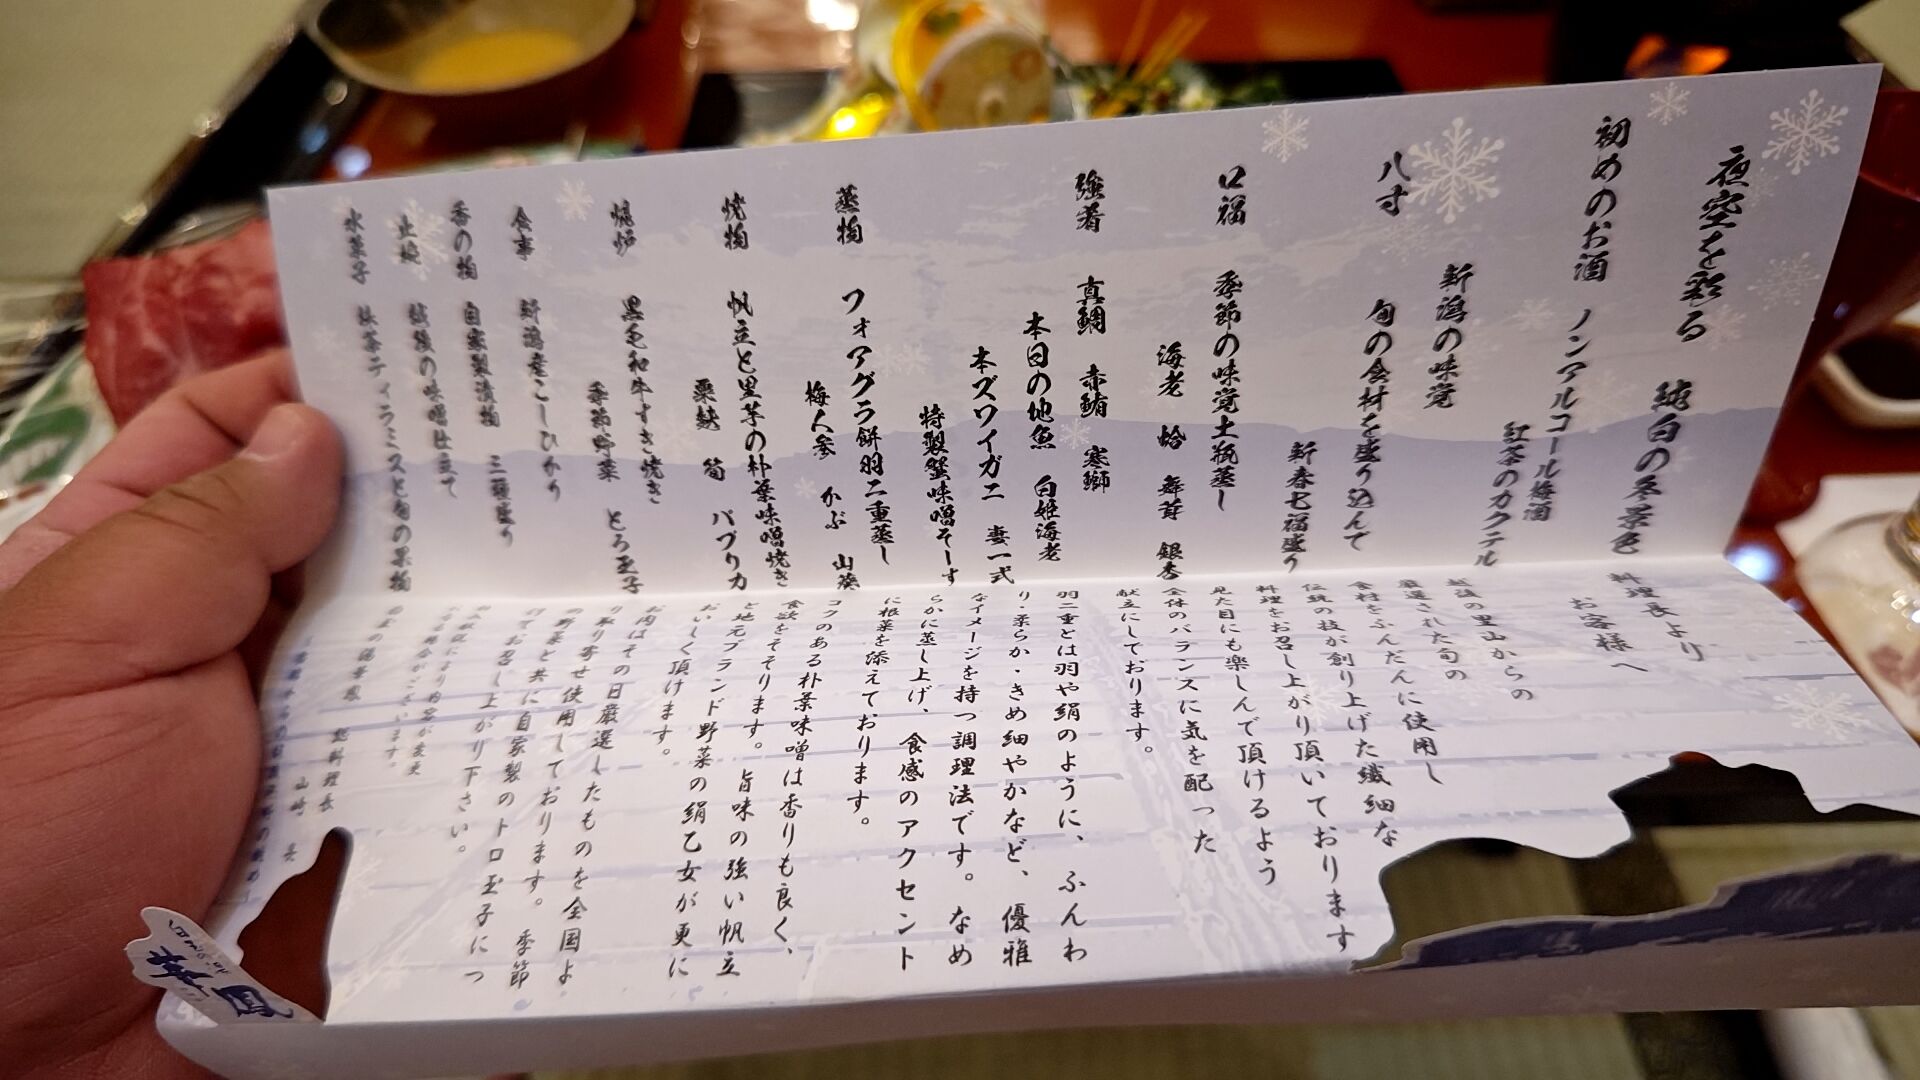 夜空を彩る 純白の冬景色
初めのお酒 ノンアルコール梅酒
紅茶のカクテル
八寸 新潟の味覚
旬の食材を盛り込んで
新春七福盛り
口福 季節の味覚土瓶蒸し
海老 蛤 舞茸 銀杏
強肴 真鯛 赤鮪 寒鰤
本日の地魚 白姫海老
本ズワイガニ 妻一式
特製蟹味噌そーす
蒸物 フォアグラ餅羽二重蒸し
梅人参 かぶ 山葵
焼物 帆立と里芋の朴葉味噌焼き
粟麩 筍 パプリカ
焜炉 黒毛和牛すき焼き
季節野菜 とろ玉子
食事 新潟産こしひかり
香の物 自家製漬物 三種盛り
止椀 越後の味噌仕立て
水菓子 抹茶ティラミスと旬の果物
料理長より
お客様へ
越後の里山からの
厳選された旬の
食材をふんだんに使用し
伝統の技が創り上げた繊細な
料理をお召し上がり頂いております
見た目にも楽しんで頂けるよう
全体のバランスに気を配った
献立にしております。
羽二重とは羽や絹のように、ふんわ
り・柔らか・きめ細やかなど、優雅
なイメージを持つ調理法です。なめ
らかに蒸し上げ、食感のアクセント
に根菜を添えております。
コクのある朴葉味噌は香りも良く、
食欲をそそります。旨味の強い帆立
と地元ブランド野菜の絹乙女が更に
おいしく頂けます。
お肉はその日厳選したものを全国よ
り取り寄せ使用しております。季節
の野菜と共に自家製のトロ玉子につ
けてお召し上がり下さい。
内容が変更
場合がございます。
総料理長
山崎